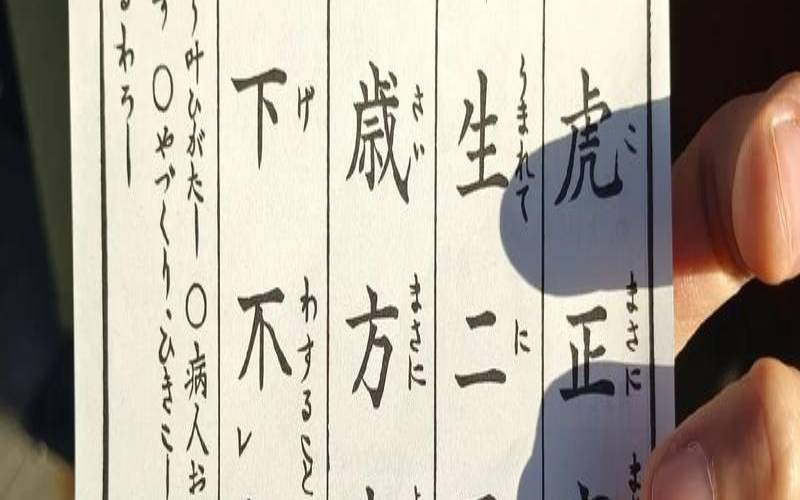 虎正
こ まさに
生二
うまれて に
歳方
さい まさに
下不レ
げ わすること
叶ひがたし〇病人お
〇やづくり、ひきこし
るわろし